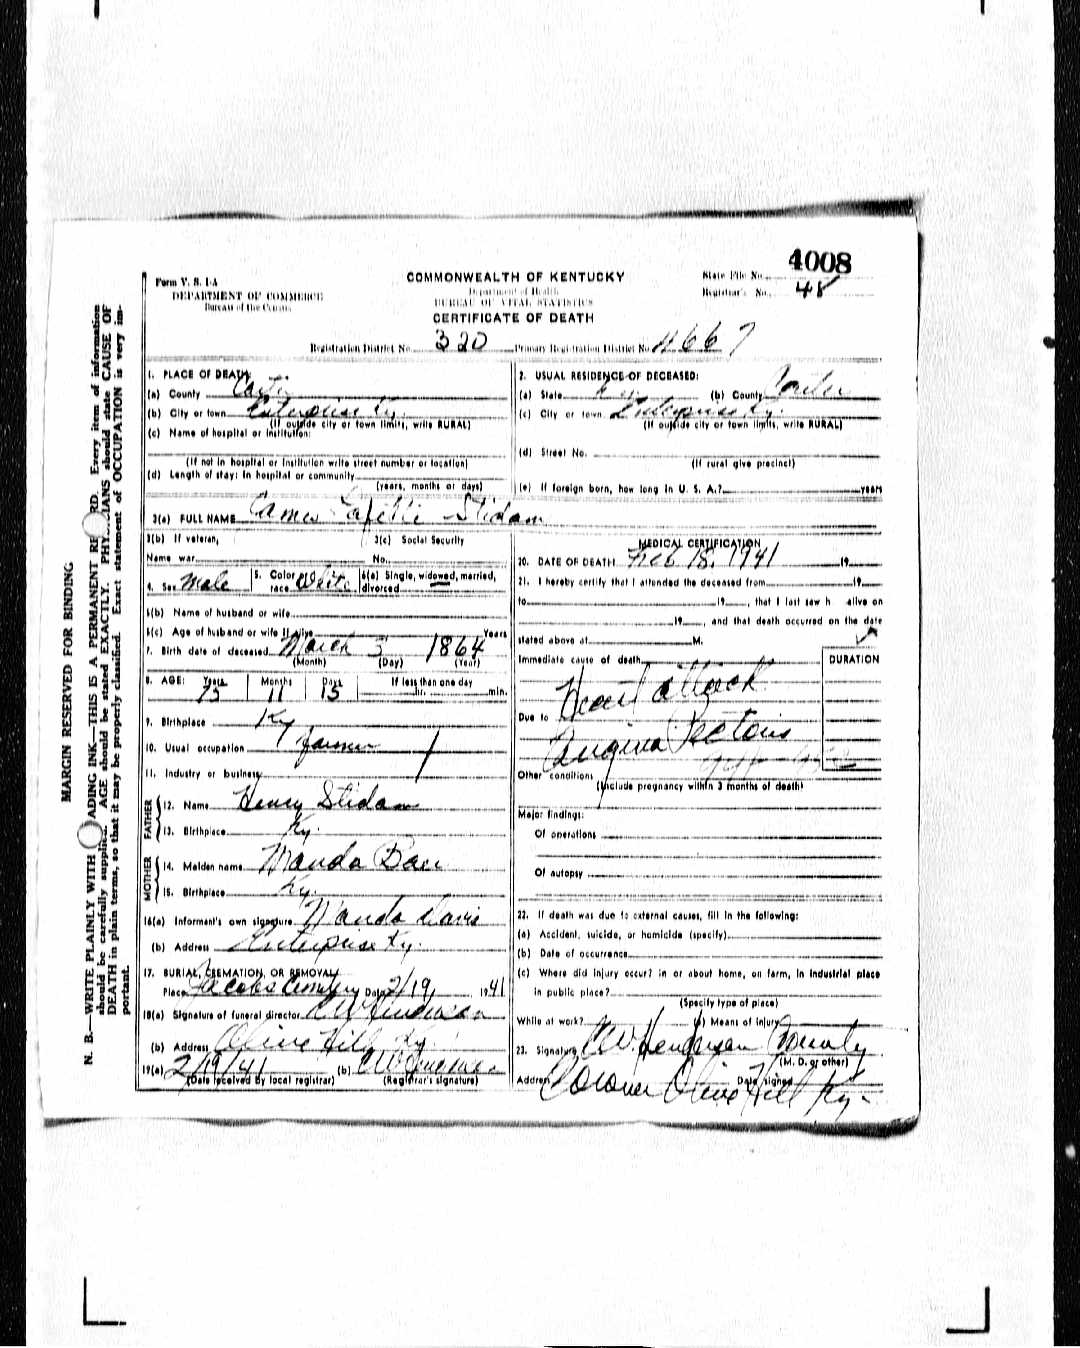 4008
Form V. S. 1-A
DEPARTMENT OF COMMERCE
Bureau of the Census
COMMONWEALTH OF KENTUCKY
Department of Health
BUREAU OF VITAL STATISTICS
CERTIFICATE OF DEATH
State File No.
Registrar's No. 48
Registration District No. 320 Primary Registration District No. 4667
MARGIN RESERVED FOR BINDING
N. B.—WRITE PLAINLY WITH UNFADING INK—THIS IS A PERMANENT RECORD. Every item of information
should be carefully supplied. AGE should be stated EXACTLY. PHYSICIANS should state CAUSE OF
DEATH in plain terms, so that it may be properly classified. Exact statement of OCCUPATION is very im-
portant.
1. PLACE OF DEATH:
(a) County Carter
(b) City or town Enterprise Ky.
(If outside city or town limits, write RURAL)
(c) Name of hospital or institution:
(If not in hospital or institution write street number or location)
(d) Length of stay: In hospital or community
(years, months or days)
2. USUAL RESIDENCE OF DECEASED:
(a) State Ky (b) County Carter
(c) City or town Enterprise Ky.
(If outside city or town limits, write RURAL)
(d) Street No.
(If rural give precinct)
(e) If foreign born, how long in U. S. A.? years
3(a) FULL NAME James Stidam
3(b) If veteran, 3(c) Social Security
Name war No.
4. Sex Male 5. Color or race White 6(a) Single, widowed, married, divorced
6(b) Name of husband or wife
6(c) Age of husband or wife if alive Years
7. Birth date of deceased March 3 1864
(Month) (Day) (Year)
8. AGE: Years Months Days If less than one day
75 11 15 hr. min.
9. Birthplace Ky
10. Usual occupation Farmer
11. Industry or business
FATHER
12. Name Henry Stidam
13. Birthplace Ky.
MOTHER
14. Maiden name Manda
15. Birthplace Ky.
16(a) Informent's own signature Manda Davis
(b) Address Enterprise Ky.
17. BURIAL, CREMATION, OR REMOVAL
Place Jacobs Cemetery Date 2/19, 1941
18(a) Signature of funeral director C W Henderson
(b) Address Olive Hill Ky
19(a) 2/19/41 (b)
(Date received by local registrar) (Registrar's signature)
MEDICAL CERTIFICATION
20. DATE OF DEATH Feb 18, 1941 19
21. I hereby certify that I attended the deceased from 19
to 19 , that I last saw h alive on
19 , and that death occurred on the date
stated above at M.
Immediate cause of death DURATION
Heart attack
Due to
Angina Pectoris
Other conditions
(Include pregnancy within 3 months of death)
Major findings:
Of operations
Of autopsy
22. If death was due to external causes, fill in the following:
(a) Accident, suicide, or homicide (specify)
(b) Date of occurrence
(c) Where did injury occur? in or about home, on farm, in industrial place
in public place?
(Specify type of place)
While at work? (e) Means of injury
23. Signature C W. Henderson County
(M. D. or other)
Address Coroner Olive Hill Ky- Date signed